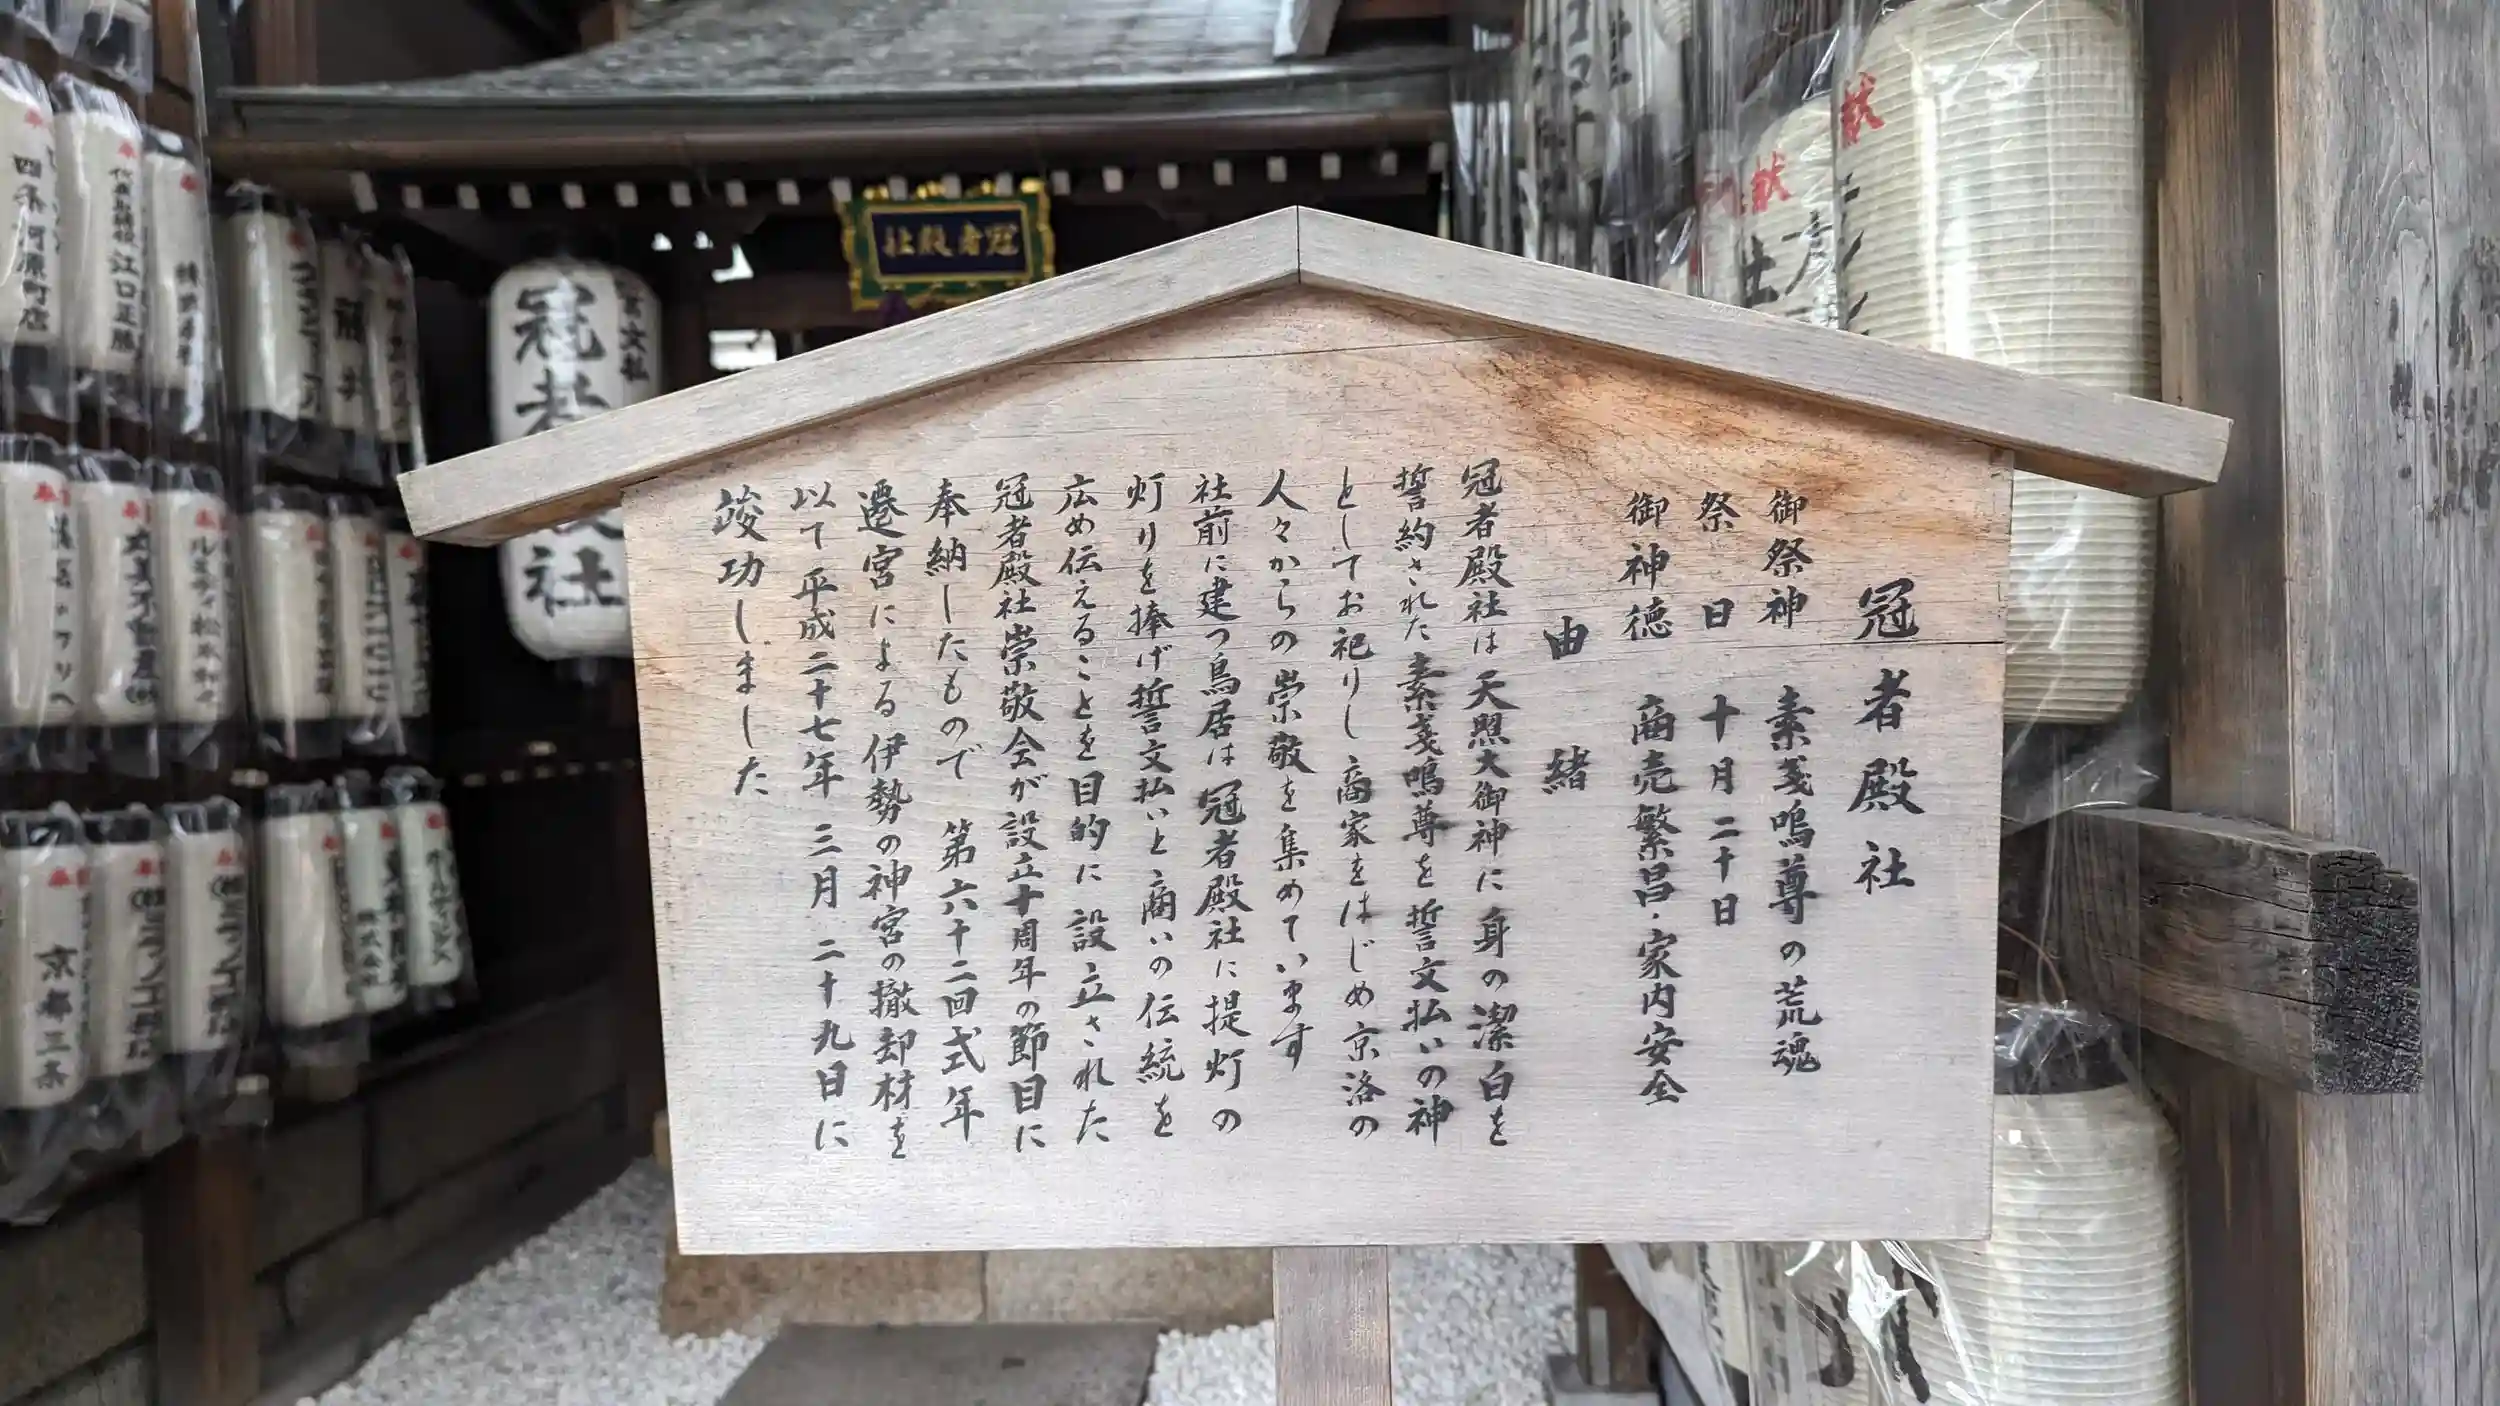 冠者殿社
御祭神 素戔嗚尊の荒魂
祭日 十月二十日
御神徳 商売繁昌・家内安全
由緒
冠者殿社は天照大御神に身の潔白を
誓約された素戔嗚尊を誓文払いの神
としてお祀りし商家をはじめ京洛の
人々からの崇敬を集めています
社前に建つ鳥居は冠者殿社に提灯の
灯りを捧げ誓文払いと商いの伝統を
広め伝えることを目的に設立された
冠者殿社崇敬会が設立十周年の節目に
奉納したもので 第六十二回式年
遷宮による伊勢の神宮の撤却材を
以て平成二十七年三月二十九日に
竣功しました
冠者殿社
冠者殿社
四条河原町店
江口正勝
藤井
京都三条
株式会社
献
献